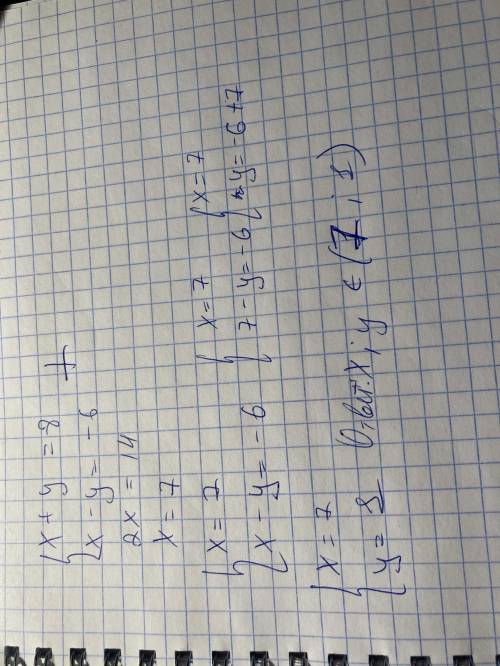 {x + y = 8
{x - y = -6 +
2x = 14
x = 7
{x = 7 {x = 7 {x = 7
{x - y = -6 {7 - y = -6 {y = -6 + 7
{x = 7
{y = 1 Ответ: x; y ∈ (7; 1)